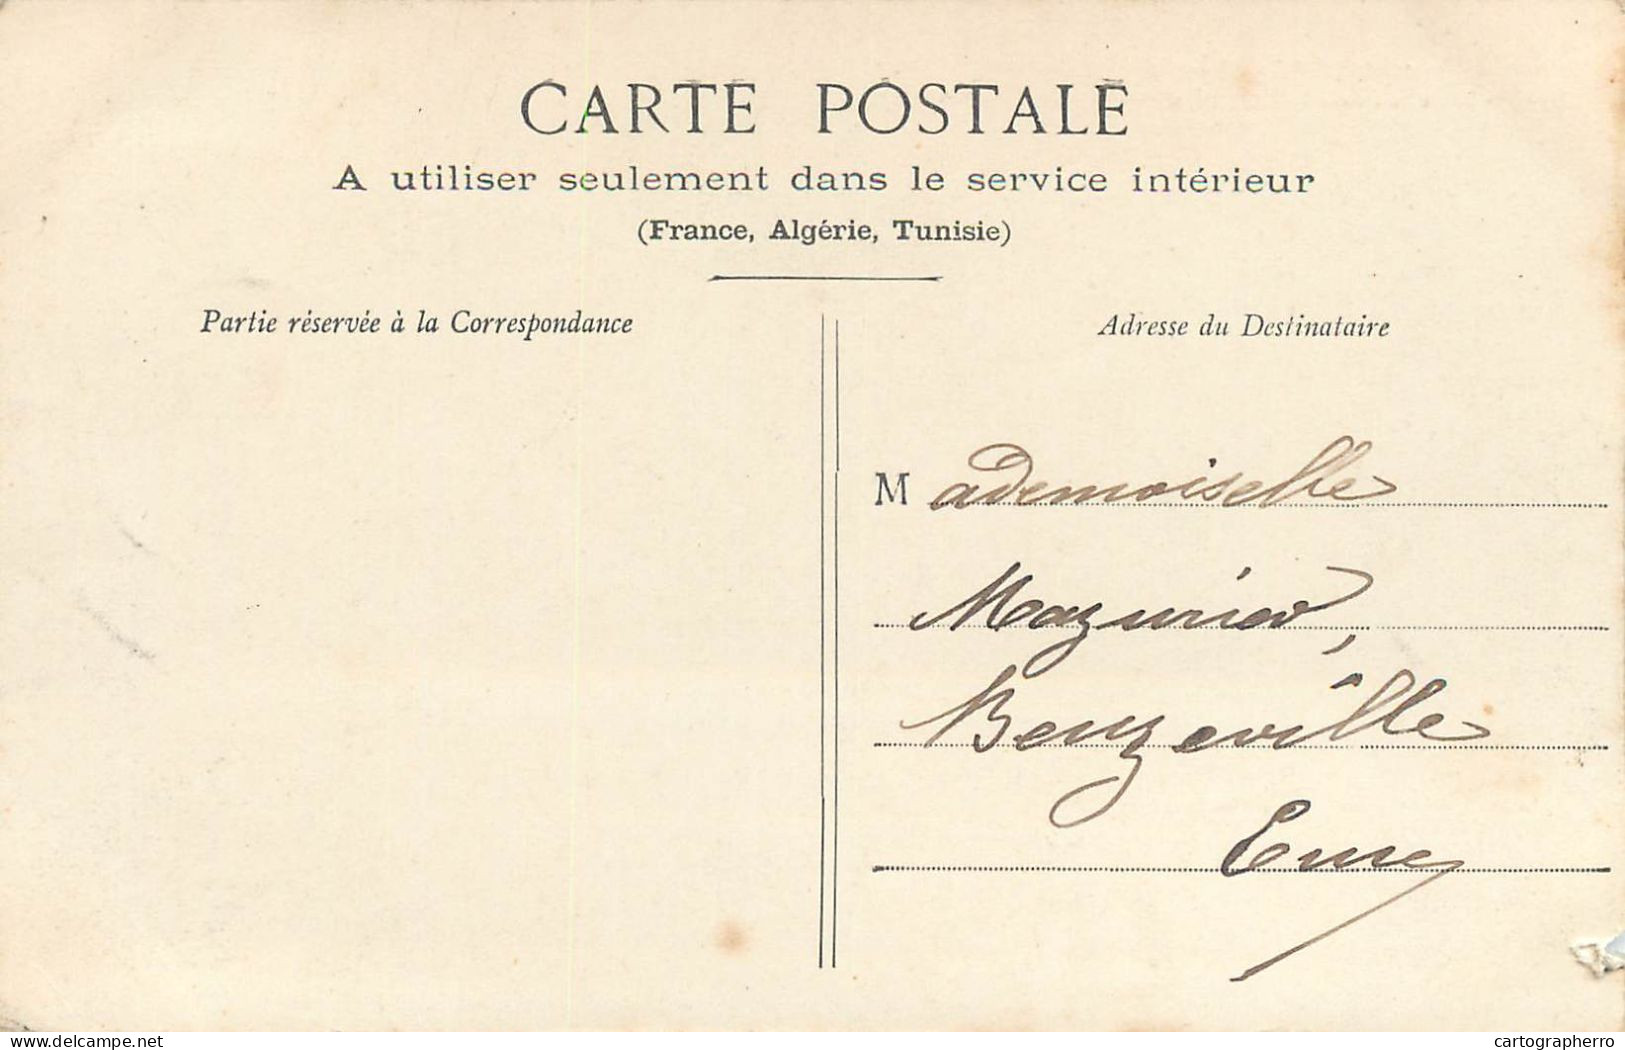 CARTE POSTALE
A utiliser seulement dans le service intérieur
(France, Algérie, Tunisie)
Partie réservée à la Correspondance
Adresse du Destinataire
Mademoiselle
Mazurier,
Beuzeville
Eure
delcampe.net
cartographerro